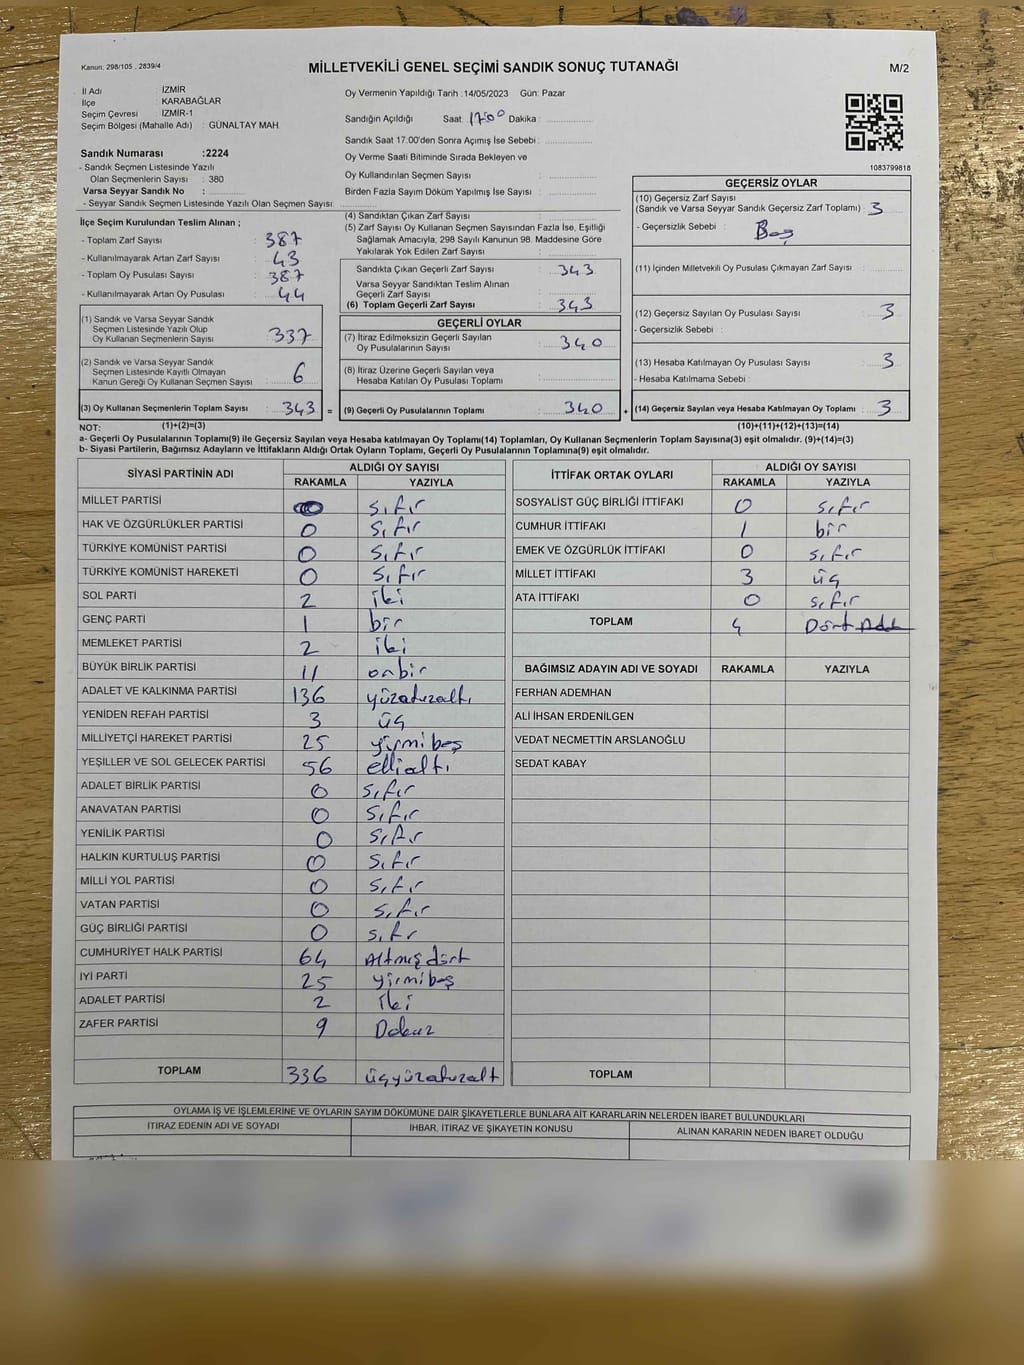 Kanun: 298/105 , 2839/4
MİLLETVEKİLİ GENEL SEÇİMİ SANDIK SONUÇ TUTANAĞI
M/2
İl Adı İZMİR
İlçe : KARABAĞLAR
Seçim Çevresi : İZMİR-1
Seçim Bölgesi (Mahalle Adı) : GÜNALTAY MAH.
Sandık Numarası :2224
- Sandık Seçmen Listesinde Yazılı
Olan Seçmenlerin Sayısı : 380
Varsa Seyyar Sandık No :
- Seyyar Sandık Seçmen Listesinde Yazılı Olan Seçmen Sayısı:
Oy Vermenin Yapıldığı Tarih :14/05/2023 Gün: Pazar
Sandığın Açıldığı Saat: 1700 Dakika :
Sandık Saat 17.00'den Sonra Açımış İse Sebebi :
Oy Verme Saati Bitiminde Sırada Bekleyen ve
Oy Kullandırılan Seçmen Sayısı :
Birden Fazla Sayım Döküm Yapılmış İse Sayısı :
1083799818
İlçe Seçim Kurulundan Teslim Alınan ;
- Toplam Zarf Sayısı : 387
- Kullanılmayarak Artan Zarf Sayısı : 43
- Toplam Oy Pusulası Sayısı : 387
- Kullanılmayarak Artan Oy Pusulası : 44
(1) Sandık ve Varsa Seyyar Sandık
Seçmen Listesinde Yazılı Olup
Oy Kullanan Seçmenlerin Sayısı : 337
(2) Sandık ve Varsa Seyyar Sandık
Seçmen Listesinde Kayıtlı Olmayan
Kanun Gereği Oy Kullanan Seçmen Sayısı : 6
(3) Oy Kullanan Seçmenlerin Toplam Sayısı : 343 =
(1)+(2)=(3)
(4) Sandıktan Çıkan Zarf Sayısı :
(5) Zarf Sayısı Oy Kullanan Seçmen Sayısından Fazla İse, Eşitliği
Sağlamak Amacıyla, 298 Sayılı Kanunun 98. Maddesine Göre
Yakılarak Yok Edilen Zarf Sayısı :
Sandıkta Çıkan Geçerli Zarf Sayısı : 343
Varsa Seyyar Sandıktan Teslim Alınan
Geçerli Zarf Sayısı :
(6) Toplam Geçerli Zarf Sayısı : 343
GEÇERLİ OYLAR
(7) İtiraz Edilmeksizin Geçerli Sayılan
Oy Pusulalarının Sayısı : 340
(8) İtiraz Üzerine Geçerli Sayılan veya
Hesaba Katılan Oy Pusulası Toplamı :
(9) Geçerli Oy Pusulalarının Toplamı : 340 +
GEÇERSİZ OYLAR
(10) Geçersiz Zarf Sayısı
(Sandık ve Varsa Seyyar Sandık Geçersiz Zarf Toplamı) : 3
- Geçersizlik Sebebi : Boş
(11) İçinden Milletvekili Oy Pusulası Çıkmayan Zarf Sayısı :
(12) Geçersiz Sayılan Oy Pusulası Sayısı : 3
- Geçersizlik Sebebi :
(13) Hesaba Katılmayan Oy Pusulası Sayısı : 3
- Hesaba Katılmama Sebebi :
(14) Geçersiz Sayılan veya Hesaba Katılmayan Oy Toplamı : 3
(10)+(11)+(12)+(13)=(14)
NOT:
a- Geçerli Oy Pusulalarının Toplamı(9) ile Geçersiz Sayılan veya Hesaba katılmayan Oy Toplamı(14) Toplamları, Oy Kullanan Seçmenlerin Toplam Sayısına(3) eşit olmalıdır. (9)+(14)=(3)
b- Siyasi Partilerin, Bağımsız Adayların ve İttifakların Aldığı Ortak Oyların Toplamı, Geçerli Oy Pusulalarının Toplamına(9) eşit olmalıdır.
SİYASİ PARTİNİN ADI ALDIĞI OY SAYISI
RAKAMLA YAZIYLA
MİLLET PARTİSİ 0 sıfır
HAK VE ÖZGÜRLÜKLER PARTİSİ 0 sıfır
TÜRKİYE KOMÜNİST PARTİSİ 0 sıfır
TÜRKİYE KOMÜNİST HAREKETİ 0 sıfır
SOL PARTİ 2 iki
GENÇ PARTİ 1 bir
MEMLEKET PARTİSİ 2 iki
BÜYÜK BİRLİK PARTİSİ 11 onbir
ADALET VE KALKINMA PARTİSİ 136 yüzotuzaltı
YENİDEN REFAH PARTİSİ 3 üç
MİLLİYETÇİ HAREKET PARTİSİ 25 yirmibeş
YEŞİLLER VE SOL GELECEK PARTİSİ 56 ellialtı
ADALET BİRLİK PARTİSİ 0 sıfır
ANAVATAN PARTİSİ 0 sıfır
YENİLİK PARTİSİ 0 sıfır
HALKIN KURTULUŞ PARTİSİ 0 sıfır
MİLLİ YOL PARTİSİ 0 sıfır
VATAN PARTİSİ 0 sıfır
GÜÇ BİRLİĞİ PARTİSİ 0 sıfr
CUMHURİYET HALK PARTİSİ 64 Altmışdört
İYİ PARTİ 25 yirmibeş
ADALET PARTİSİ 2 iki
ZAFER PARTİSİ 9 Dokuz
TOPLAM 336 üçyüzotuzalt
İTTİFAK ORTAK OYLARI ALDIĞI OY SAYISI
RAKAMLA YAZIYLA
SOSYALİST GÜÇ BİRLİĞİ İTTİFAKI 0 sıfır
CUMHUR İTTİFAKI 1 bir
EMEK VE ÖZGÜRLÜK İTTİFAKI 0 sıfır
MİLLET İTTİFAKI 3 üç
ATA İTTİFAKI 0 sıfır
TOPLAM 4 Dört
BAĞIMSIZ ADAYIN ADI VE SOYADI RAKAMLA YAZIYLA
FERHAN ADEMHAN
ALİ İHSAN ERDENİLGEN
VEDAT NECMETTİN ARSLANOĞLU
SEDAT KABAY
TOPLAM
OYLAMA İŞ VE İŞLEMLERİNE VE OYLARIN SAYIM DÖKÜMÜNE DAİR ŞİKAYETLERLE BUNLARA AİT KARARLARIN NELERDEN İBARET BULUNDUKLARI
İTİRAZ EDENİN ADI VE SOYADI İHBAR, İTİRAZ VE ŞİKAYETİN KONUSU ALINAN KARARIN NEDEN İBARET OLDUĞU